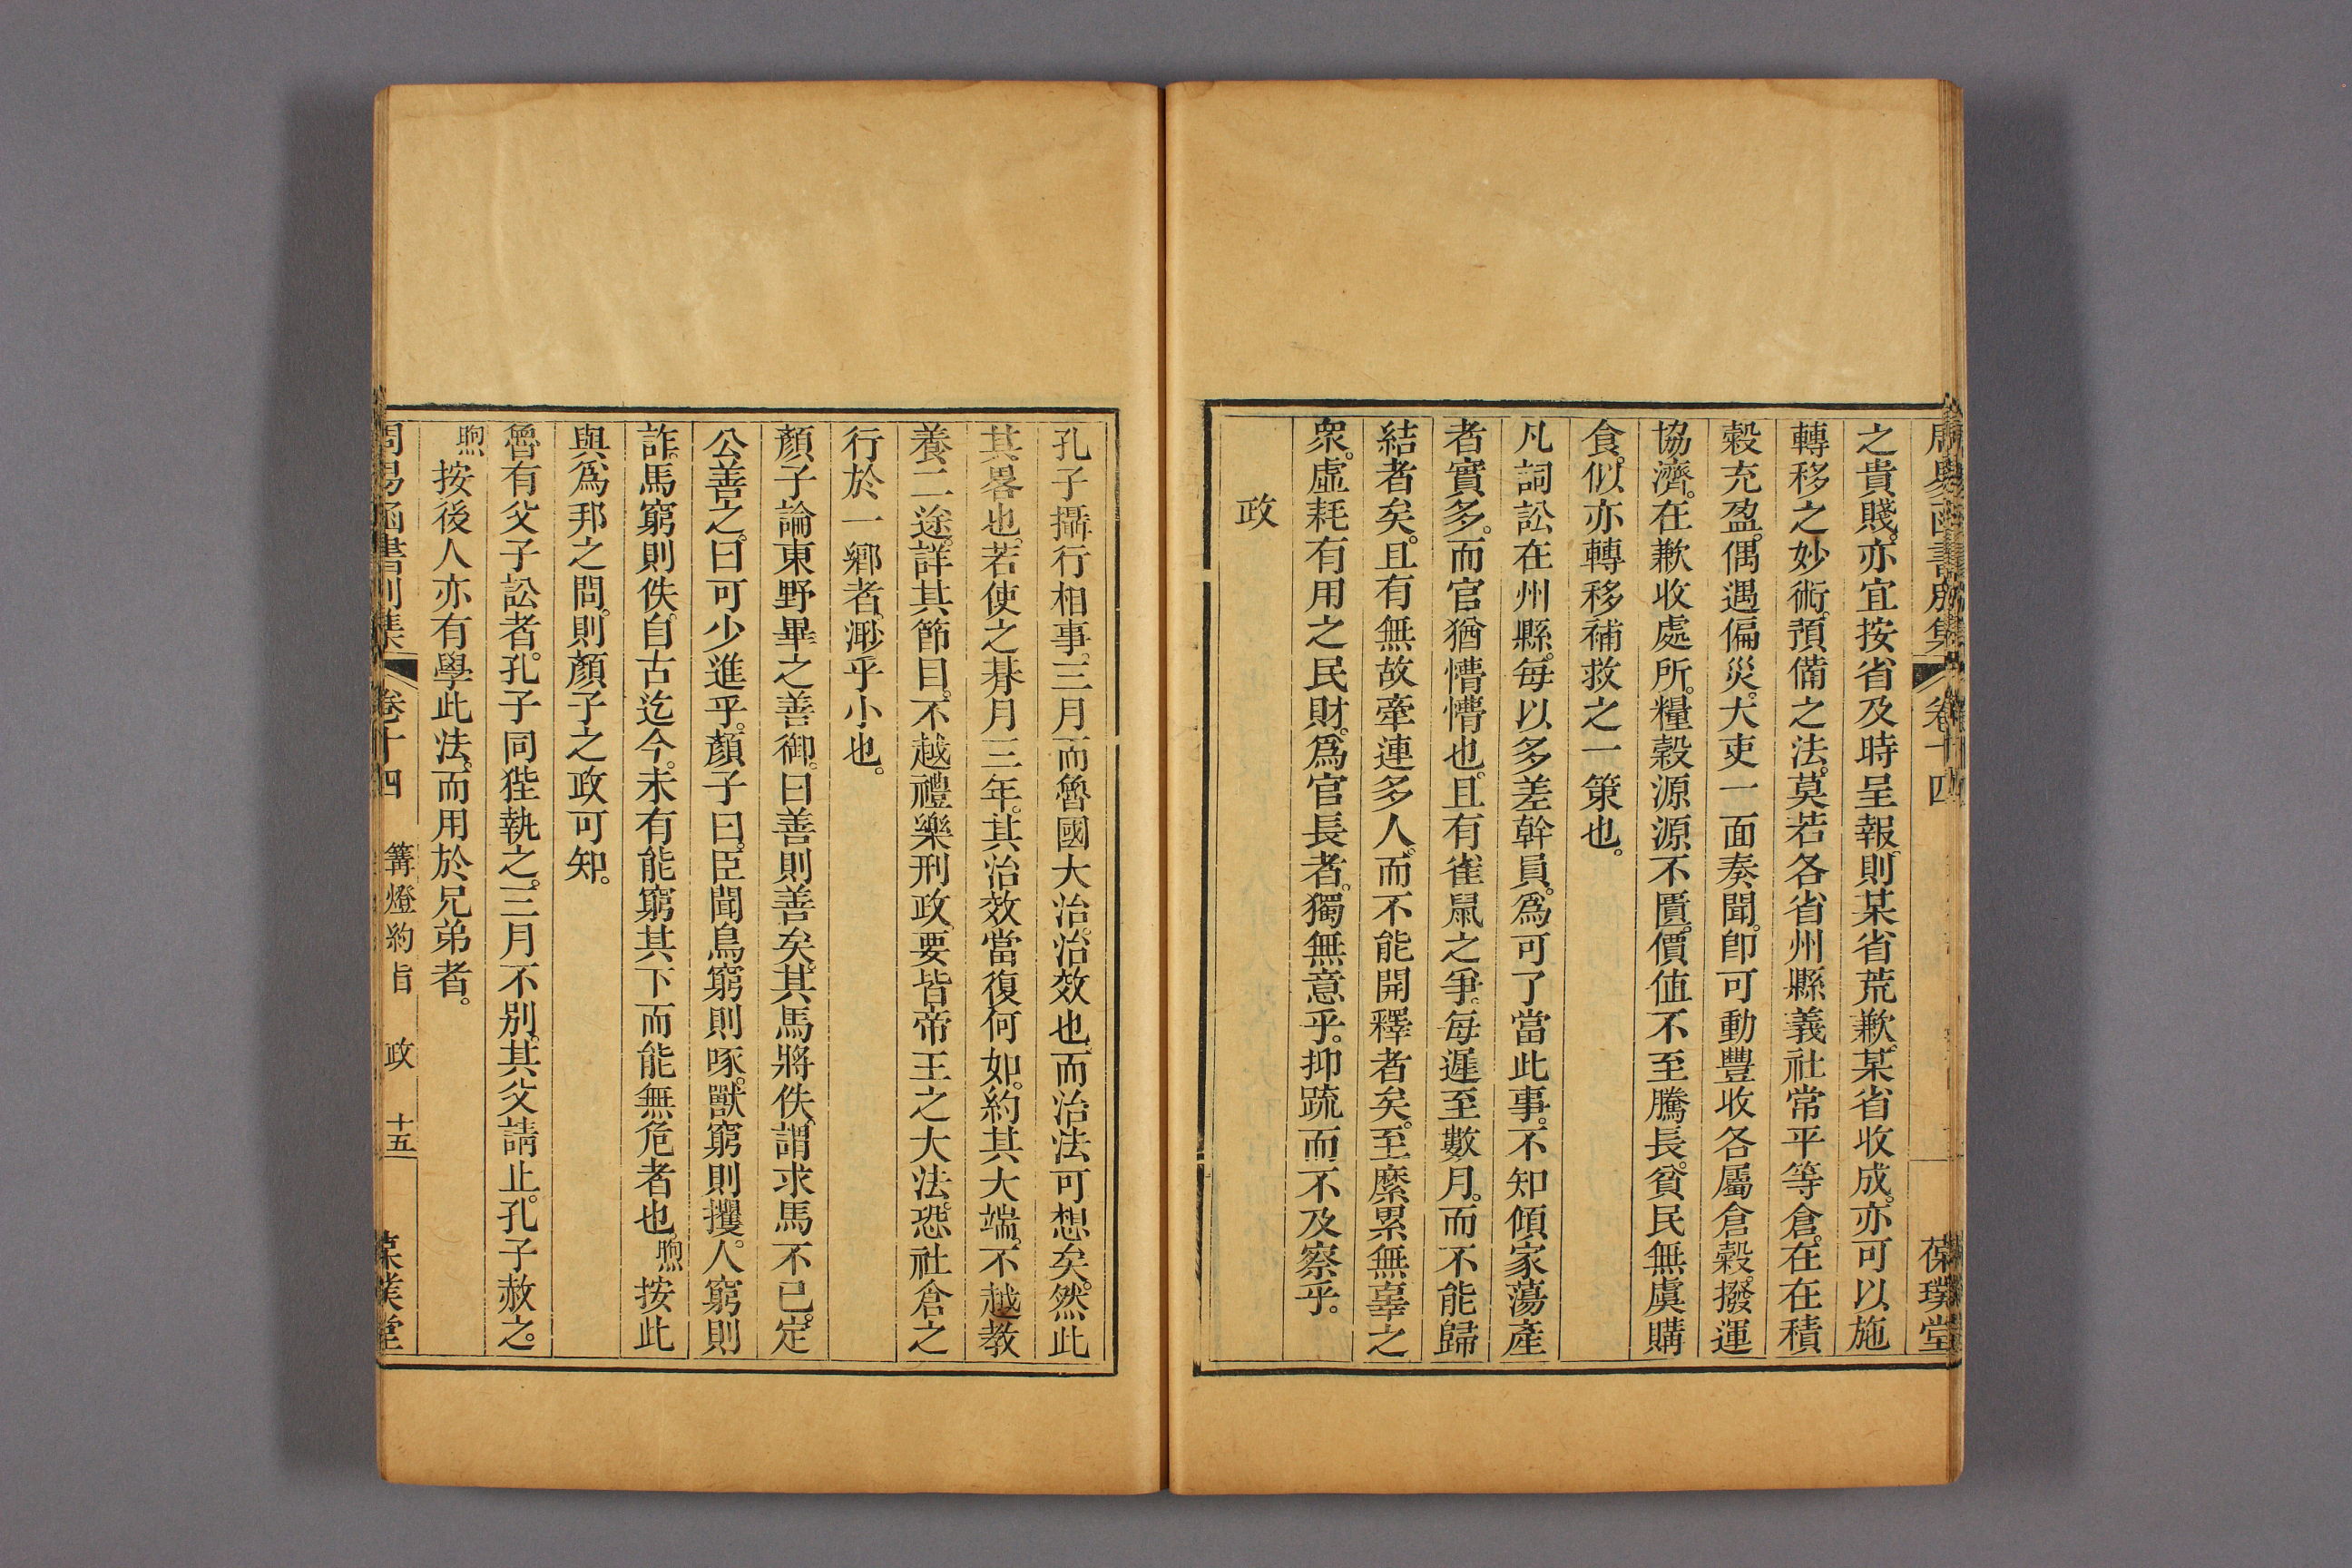 周易函書別集 卷十四 葆璞堂
之貴賤。亦宜按省及時呈報。則某省荒歉。某省收成。亦可以施
轉移之妙術。預備之法。莫若各省州縣義社常平等倉。在在積
穀充盈。偶遇偏災。大吏一面奏聞。卽可動豐收各屬倉穀。撥運
協濟。在歉收處所。糧穀源源不匱。價值不至騰長。貧民無虞購
食。似亦轉移補救之一策也。
凡詞訟在州縣。每以多差幹員。爲可了當此事。不知傾家蕩產
者實多。而官猶懵懵也。且有雀鼠之爭。每遲至數月。而不能歸
結者矣。且有無故牽連多人。而不能開釋者矣。至縻累無辜之
衆。虛耗有用之民財。爲官長者。獨無意乎。抑疏而不及察乎。
政
孔子攝行相事。三月而魯國大治。治效也。而治法可想矣。然此
其畧也。若使之朞月三年。其治效當復何如。約其大端。不越教
養二途。詳其節目。不越禮樂刑政。要皆帝王之大法。恐社倉之
行於一鄉者。渺乎小也。
顏子論東野畢之善御。曰善則善矣。其馬將佚。謂求馬不已。定
公善之。曰可少進乎。顏子曰。臣聞鳥窮則啄。獸窮則攫。人窮則
詐。馬窮則佚。自古迄今。未有能窮其下而能無危者也。煦按此
與爲邦之問。則顏子之政可知。
魯有父子訟者。孔子同狴執之。三月不別。其父請止。孔子赦之。
煦按後人亦有學此法。而用於兄弟者。
周易函書別集 卷十四 篝燈約旨 政 十五 葆璞堂